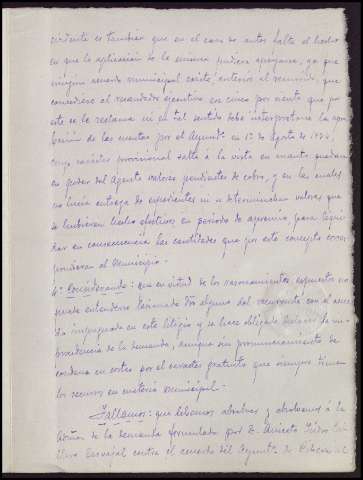 evidente es también que en el caso de autos falta el hecho
en que la aplicación de la misma pudiera apoyarse, ya que
ningún acuerdo municipal existe, anterior al recurrido, que
concediera al recaudador ejecutivo un cinco por ciento que por
este se le reclama ni en tal sentido debe interpretarse la apro
bación de las cuentas por el Ayunt. en 1º de Agosto de 1924,
cuyo carácter provisional salta a la vista en cuanto quedaban
en poder del Agente valores pendientes de cobro, y en las cuales
no hacía entrega de expedientes ni se determinaban valores que
se hubieran hecho efectivos en período de apremio, para liqui
dar en consecuencia las cantidades que por este concepto corres
pondieran al Municipio.
4º Considerando: que en virtud de los razonamientos expuestos no
puede entenderse lesionado dos alguno del recurrente con el acuer
do impugnado en este litigio y se hace obligado declarar la im
procedencia de la demanda, aunque sin pronunciamiento de
condena en costas por el carácter gratuito que siempre tienen
los recursos en materia municipal.
Fallamos: que debemos absolver y absolvemos a la
Admon de la demanda formulada por D. Aniceto Isidro
Carvajal contra el acuerdo del Ayunt. de